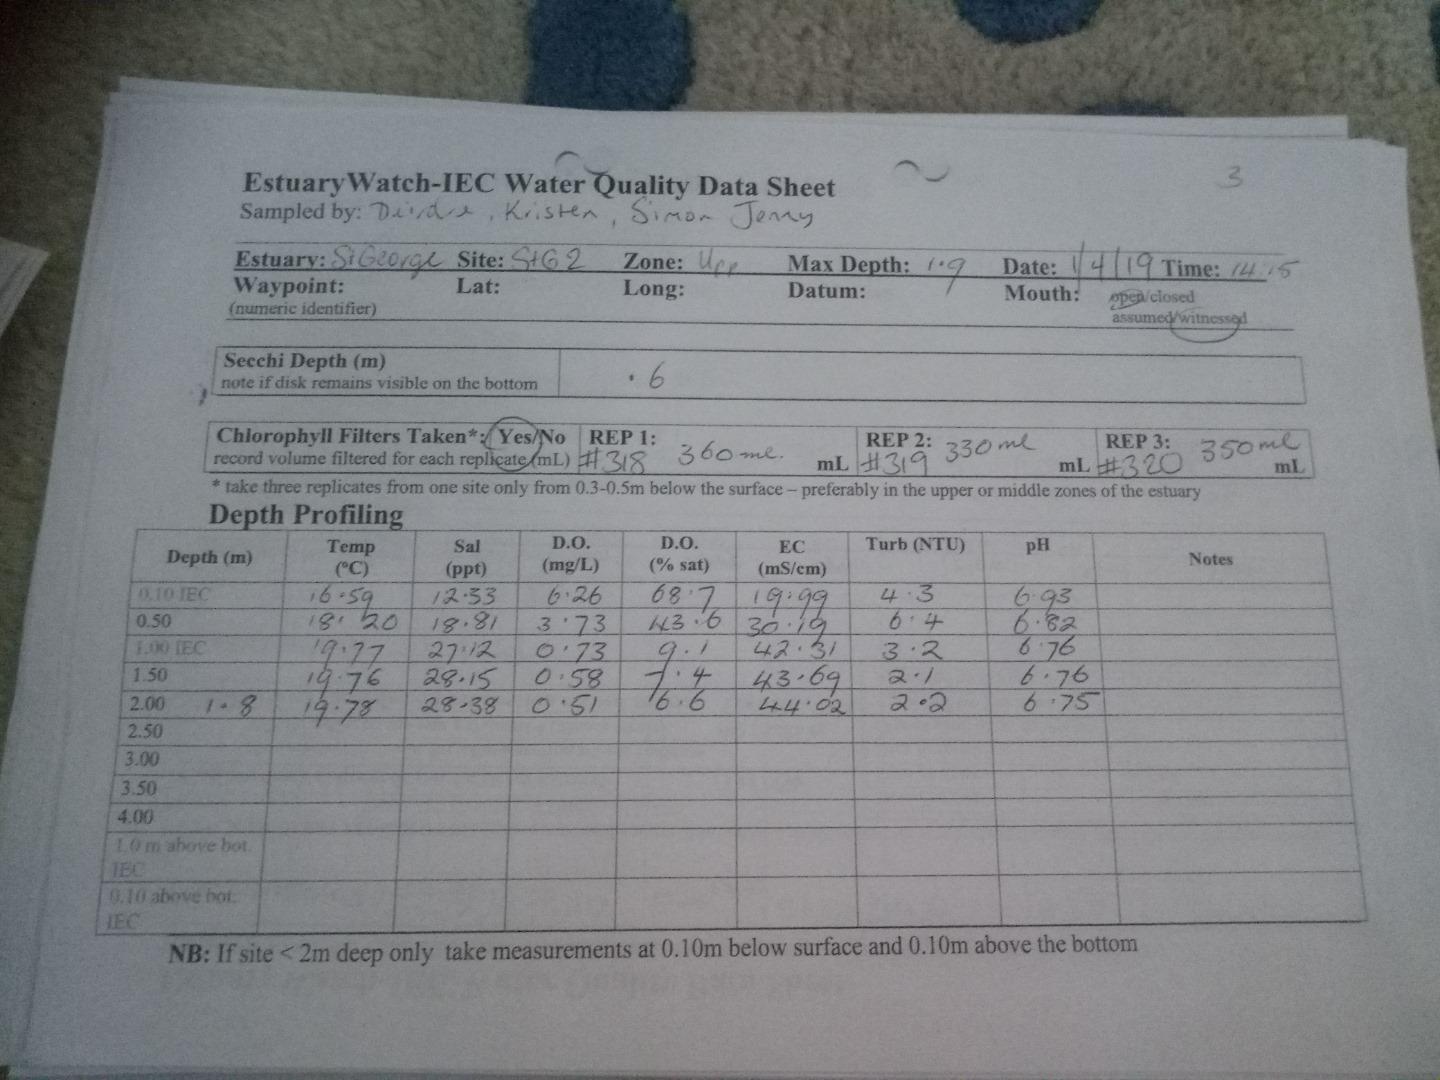 3
EstuaryWatch-IEC Water Quality Data Sheet
Sampled by: Deirdre, Kristen, Simon Jenny
Estuary: St George Site: StG2 Zone: Upp Max Depth: 1.9 Date: 1/4/19 Time: 14:15
Waypoint: Lat: Long: Datum: Mouth: open/closed
(numeric identifier) assumed/witnessed
Secchi Depth (m)
note if disk remains visible on the bottom .6
Chlorophyll Filters Taken*: Yes/No REP 1: REP 2: REP 3:
record volume filtered for each replicate (mL) #318 360 ml. mL #319 330 ml mL #320 350 ml mL
* take three replicates from one site only from 0.3-0.5m below the surface – preferably in the upper or middle zones of the estuary
Depth Profiling
Depth (m) Temp (°C) Sal (ppt) D.O. (mg/L) D.O. (% sat) EC (mS/cm) Turb (NTU) pH Notes
0.10 IEC 16.59 12.33 6.26 68.7 19.99 4.3 6.93
0.50 18.20 18.81 3.73 43.6 30.19 6.4 6.82
1.00 IEC 19.77 27.12 0.73 9.1 42.31 3.2 6.76
1.50 19.76 28.15 0.58 7.4 43.69 2.1 6.76
2.00 1.8 19.78 28.38 0.51 6.6 44.02 2.2 6.75
2.50
3.00
3.50
4.00
1.0 m above bot.
IEC
0.10 above bot.
IEC
NB: If site < 2m deep only take measurements at 0.10m below surface and 0.10m above the bottom